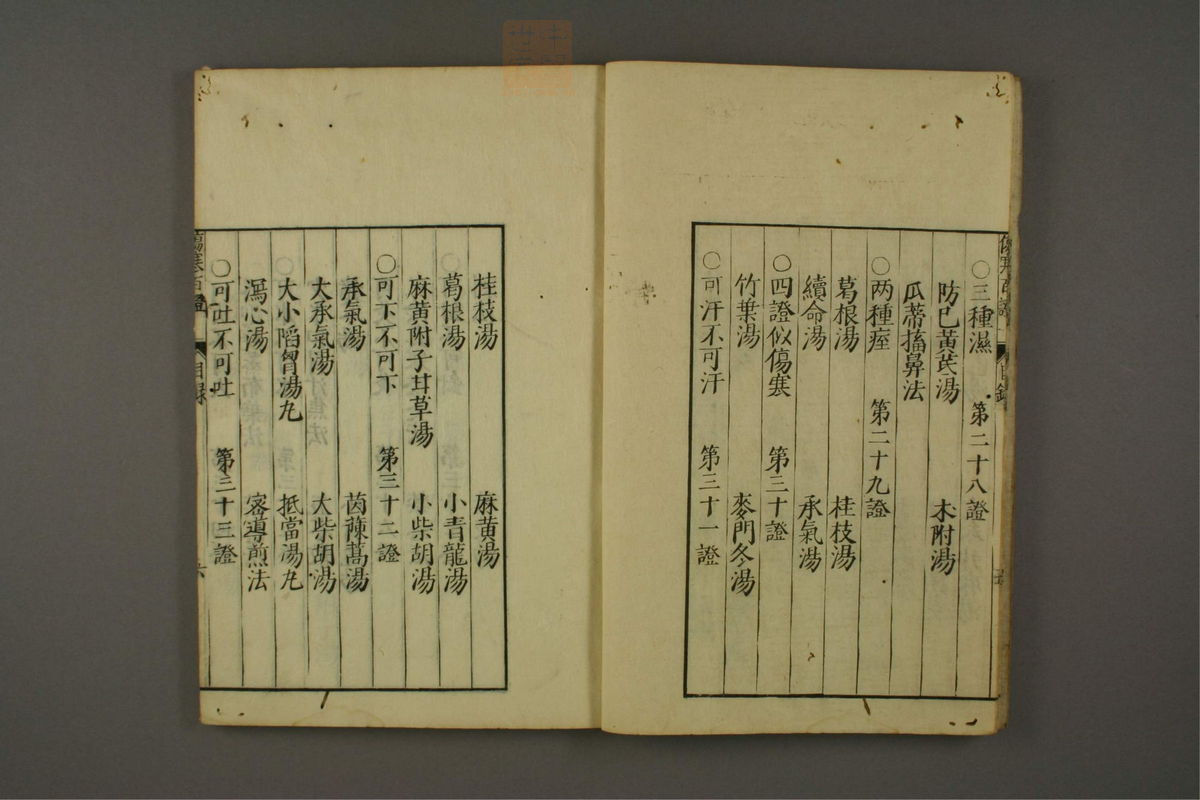 ○三種濕　第二十八證
防已黃芪湯　术附湯
瓜蒂搐鼻法
○两種痓　第二十九證
葛根湯　桂枝湯
續命湯　承氣湯
○四證似傷寒　第三十證
竹葉湯　麥門冬湯
○可汗不可汗　第三十一證
桂枝湯　麻黃湯
葛根湯　小青龍湯
麻黃附子甘草湯　小柴胡湯
○可下不可下　第三十二證
承氣湯　茵蔯蒿湯
大承氣湯　大柴胡湯
○大小陷胷湯丸　抵當湯丸
瀉心湯　宻導煎法
○可吐不可吐　第三十三證
傷寒百證　目録　六